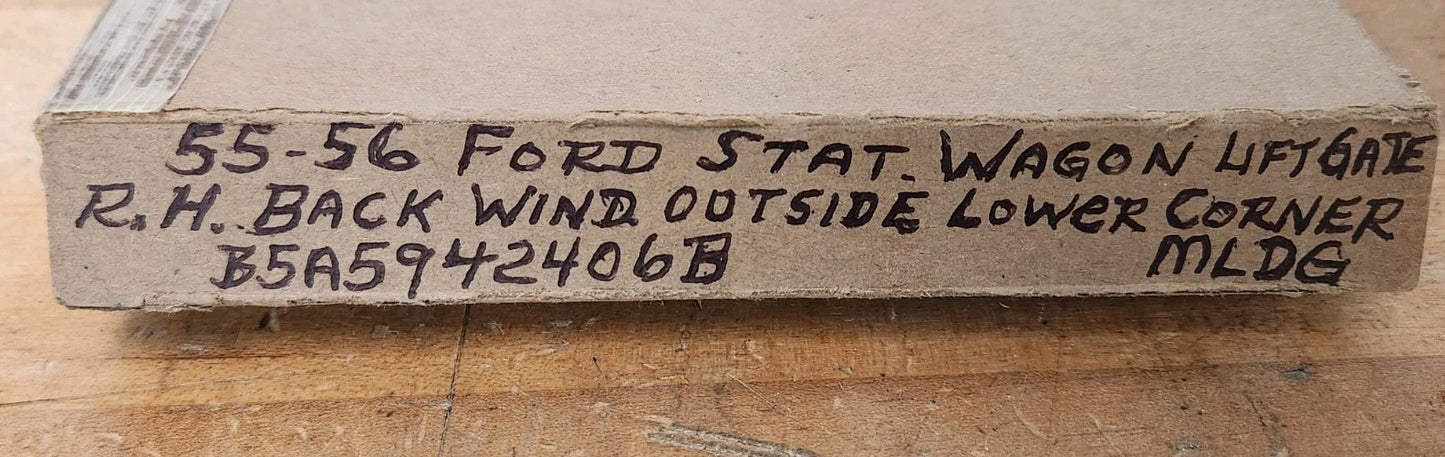 55-56 FORD STAT. WAGON LIFTGATE
R.H. BACK WIND OUTSIDE LOWER CORNER
B5A5942406B MLDG